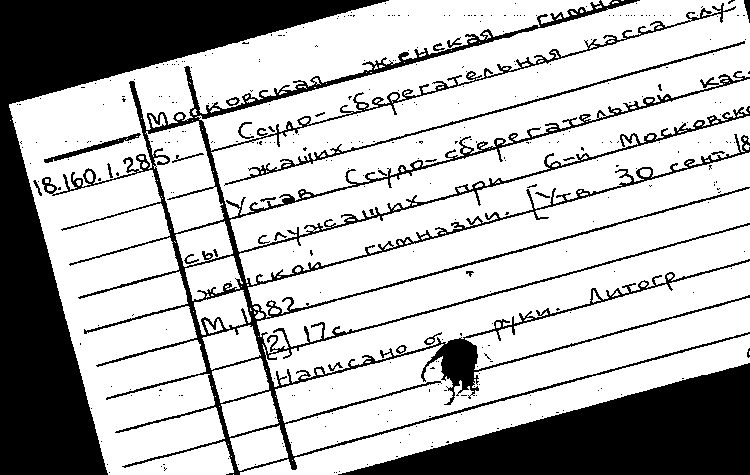 Московская женская гимна
Ссудо-сберегательная касса слу-
жащих.
18.160.1.285.
Устав Ссудо-сберегательной кас
сы служащих при 6-й Московско
женской гимназии. [Утв. 30 сент. 18
М, 1882.
[2], 17 с.
Написано от руки. Литогр